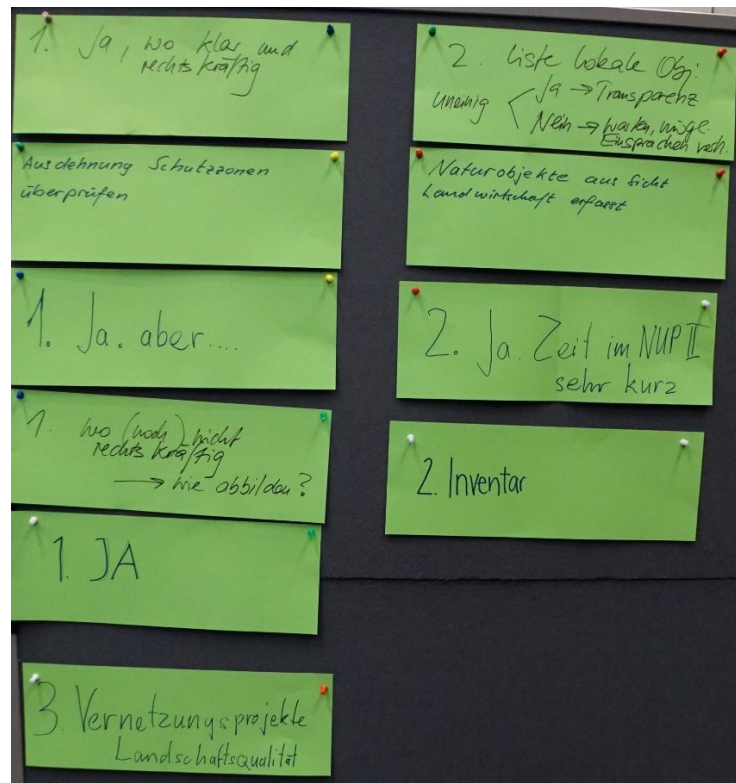 1. Ja, wo klar und
rechtskräftig
Ausdehnung Schutzzonen
überprüfen
1. Ja. aber....
1. wo (noch) nicht
rechtskräftig
→ wie abbilden?
1. JA
3. Vernetzungsprojekte
Landschaftsqualität
2. Liste lokale Obj.
uneinig
Ja → Transparenz
Nein → warten, mögl.
Einsprachen verh.
Naturobjekte aus Sicht
Landwirtschaft erfasst
2. Ja. Zeit im NUP II
sehr kurz
2. Inventar